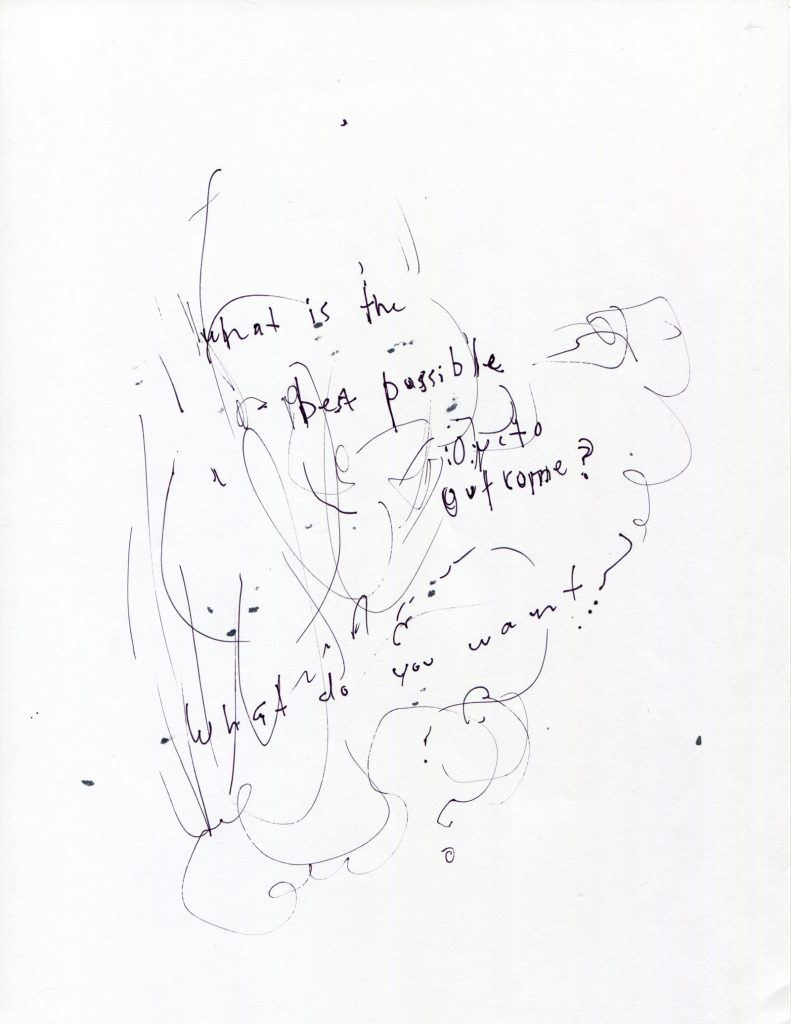 what is the
best possible
outcome?
What do you want...
?